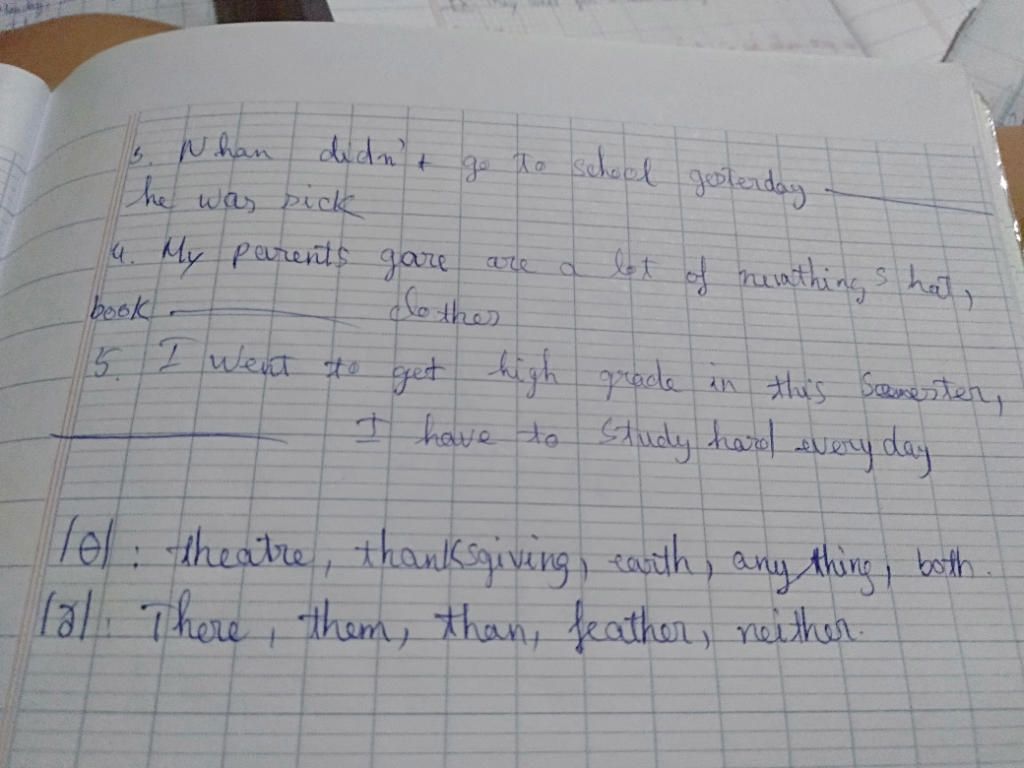 3. Nhan didn't go to school yesterday ______
he was pick
4. My parents gare are a lot of nuwathings hat,
book ______ clothes
5. I went to get high grade in this Semester,
______ I have to study hard every day
/θ/: theatre, thanksgiving, earth, anything, both.
/ð/: There, them, than, feather, neither.